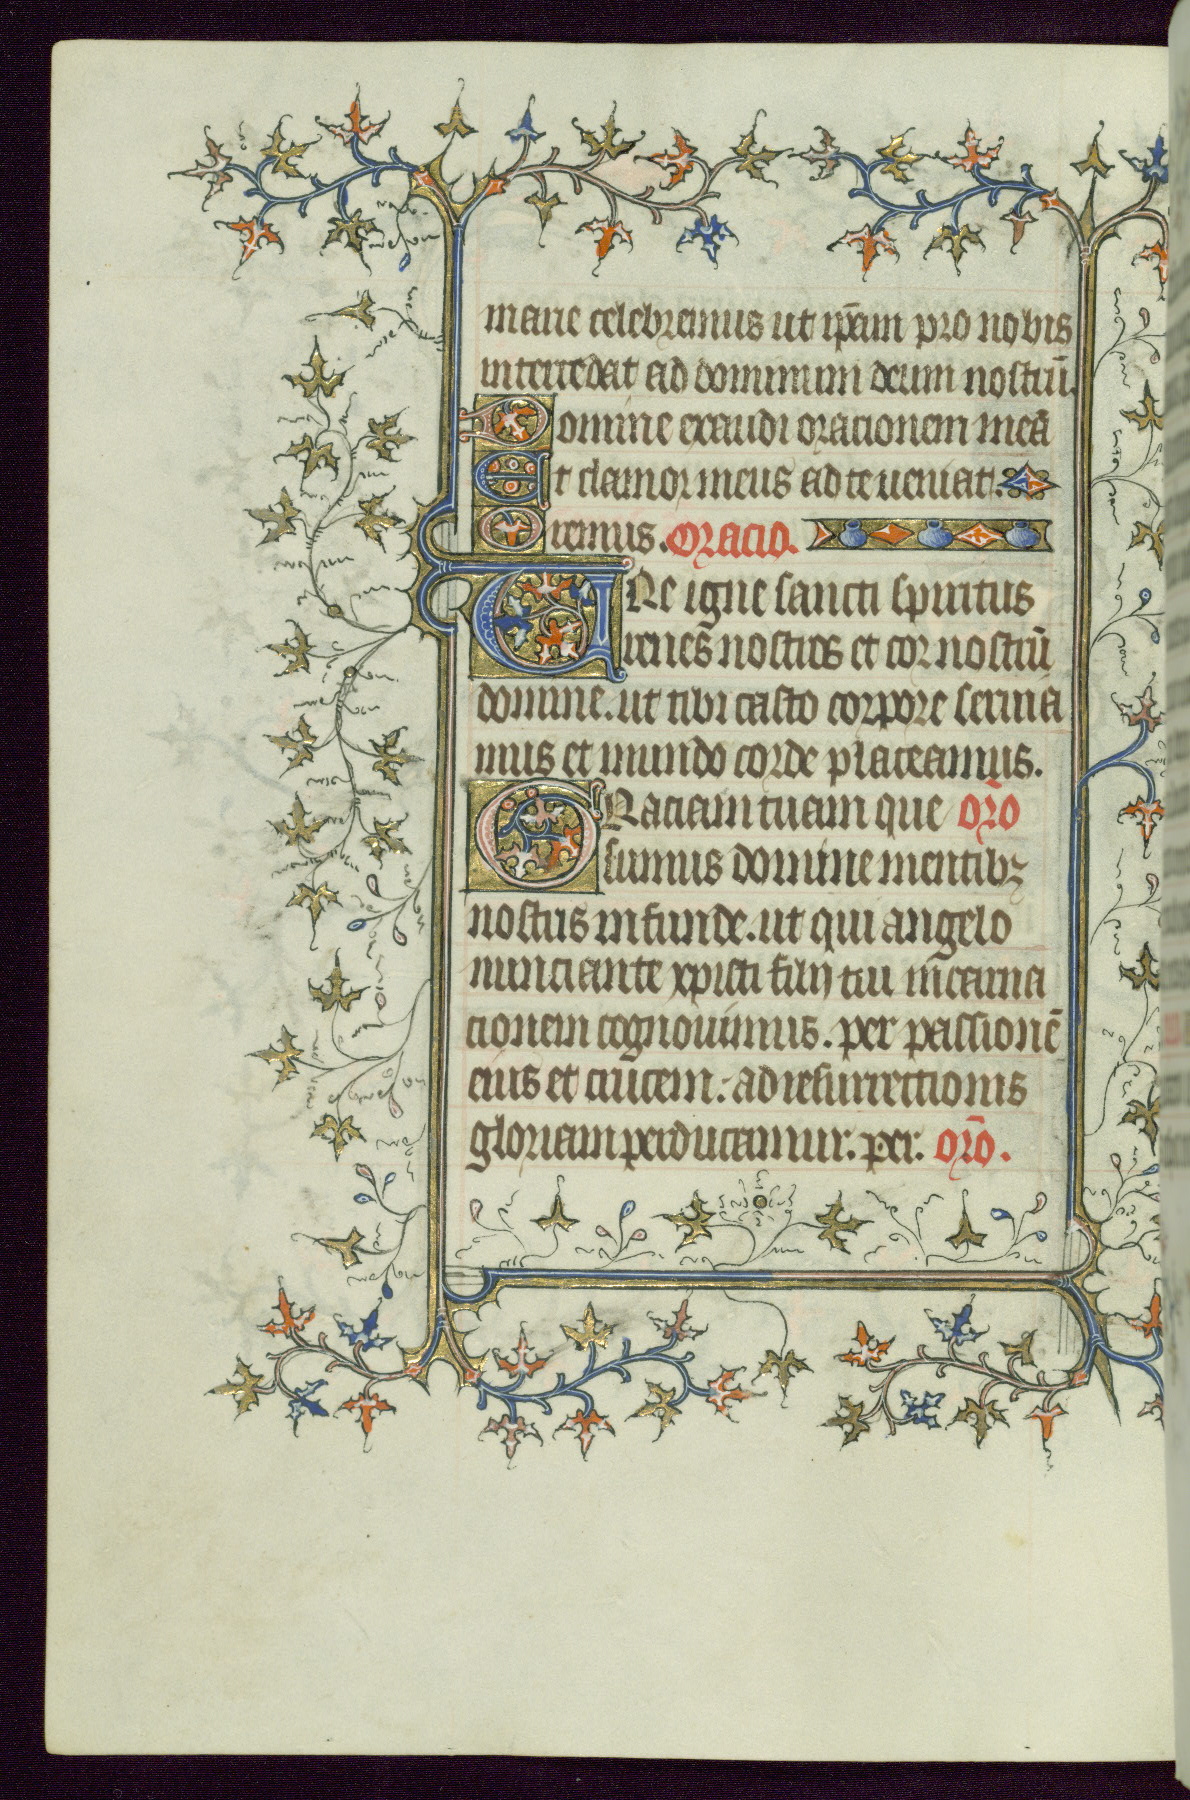 marie celebremus ut ip̄am pro nobis
intercedat ad dominum deum nostrū.
Domine exaudi orationem meā
Et clamor meus ad te veniat.
Oremus. Oracio.
Ure igne sancti spiritus
renes nostros et cor nostrū
domine. ut tibi casto corpore servia
mus et mundo corde placeamus.
Graciam tuam que or̄o
sumus domine mentibꝫ
nostris infunde. ut qui angelo
nunciante xpicti filij tui incarna
cionem cognovimus. per passionē
eius et crucem: ad resurrectionis
gloriam perducamur. per. or̄o.